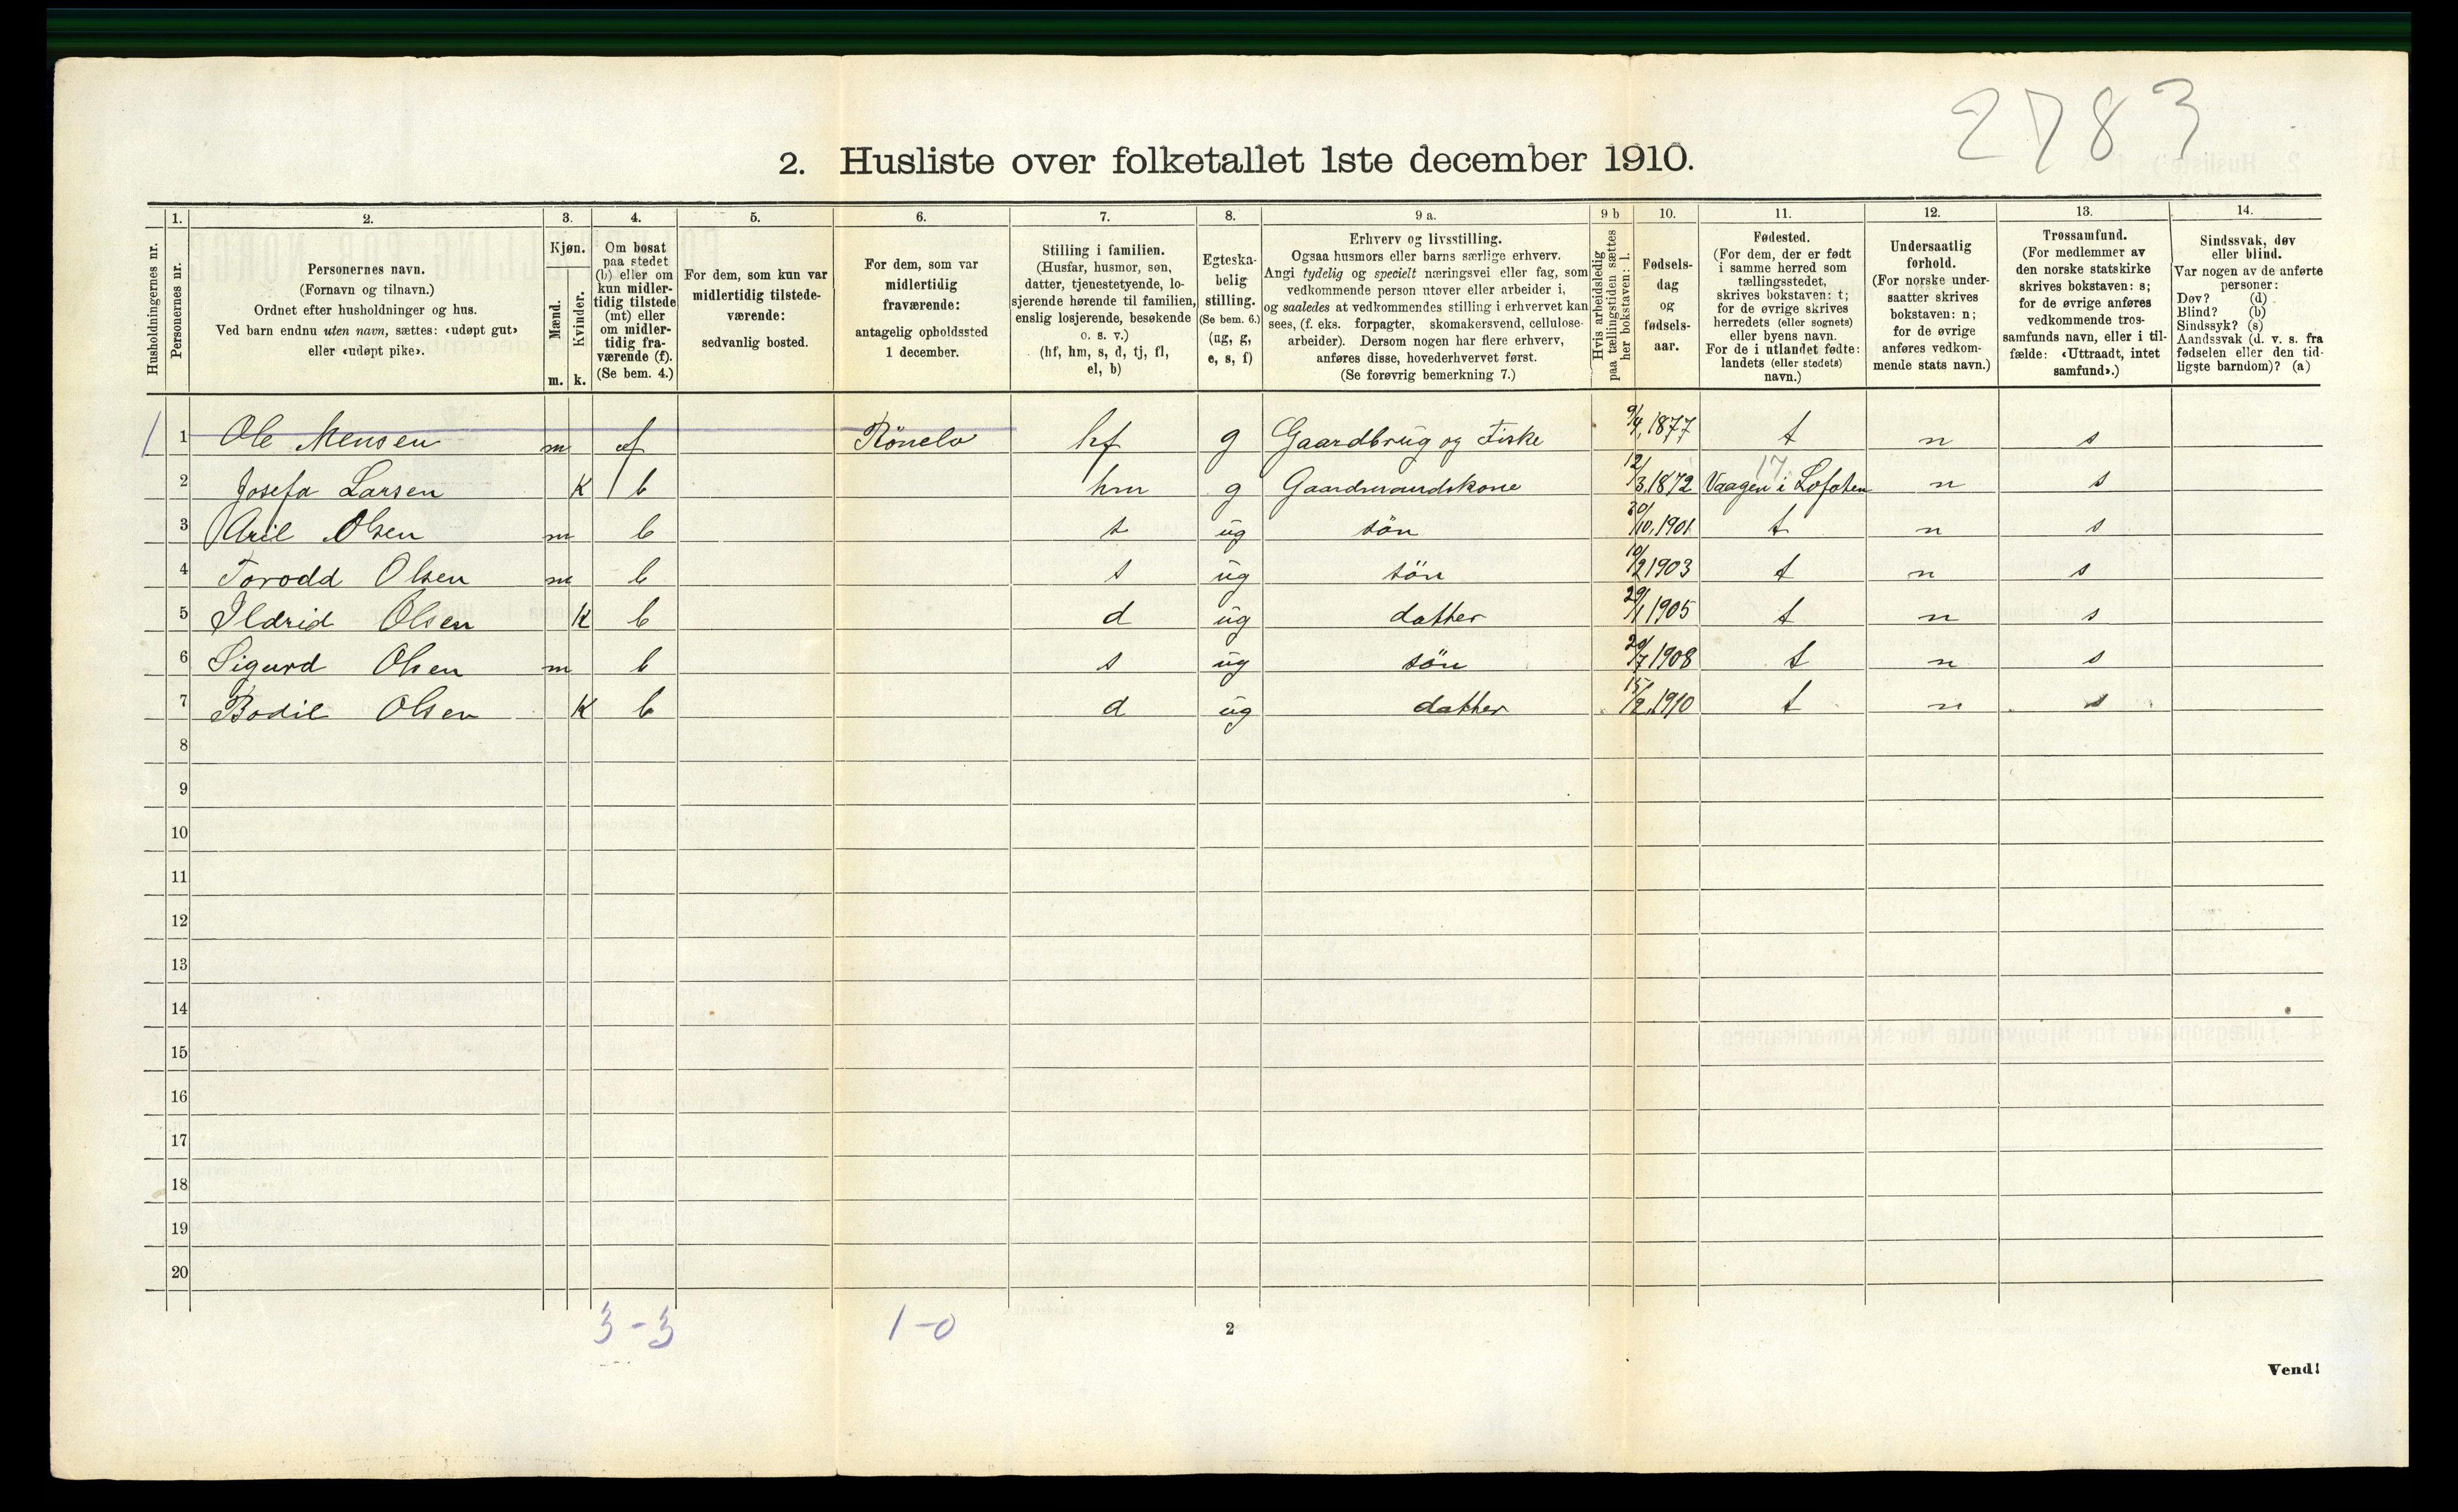 2783
2. Husliste over folketallet 1ste december 1910.
Husholdningernes nr.
1. Personernes nr.
2. Personernes navn. (Fornavn og tilnavn.) Ordnet efter husholdninger og hus. Ved barn endnu uten navn, sættes: «udøpt gut» eller «udøpt pike».
3. Kjøn. Mænd. m. Kvinder. k.
4. Om bosat paa stedet (b) eller om kun midlertidig tilstede (mt) eller om midlertidig fraværende (f). (Se bem. 4.)
5. For dem, som kun var midlertidig tilstedeværende: sedvanlig bosted.
6. For dem, som var midlertidig fraværende: antagelig opholdssted 1 december.
7. Stilling i familien. (Husfar, husmor, søn, datter, tjenestetyende, losjerende hørende til familien, enslig losjerende, besøkende o. s. v.) (hf, hm, s, d, tj, fl, el, b)
8. Egteskabelig stilling. (Se bem. 6.) (ug, g, e, s, f)
9 a. Erhverv og livsstilling. Ogsaa husmors eller barns særlige erhverv. Angi tydelig og specielt næringsvei eller fag, som vedkommende person utøver eller arbeider i, og saaledes at vedkommendes stilling i erhvervet kan sees, (f. eks. forpagter, skomakersvend, cellulosearbeider). Dersom nogen har flere erhverv, anføres disse, hovederhvervet først. (Se forøvrig bemerkning 7.)
9 b Hvis arbeidsledig paa tællingstiden sættes her bokstaven: l.
10. Fødselsdag og fødselsaar.
11. Fødested. (For dem, der er født i samme herred som tællingsstedet, skrives bokstaven: t; for de øvrige skrives herredets (eller sognets) eller byens navn. For de i utlandet fødte: landets (eller stedets) navn.)
12. Undersaatlig forhold. (For norske undersaatter skrives bokstaven: n; for de øvrige anføres vedkommende stats navn.)
13. Trossamfund. (For medlemmer av den norske statskirke skrives bokstaven: s; for de øvrige anføres vedkommende trossamfunds navn, eller i tilfælde: «Uttraadt, intet samfund».)
14. Sindssvak, døv eller blind. Var nogen av de anførte personer: Døv? (d) Blind? (b) Sindssyk? (s) Aandssvak (d. v. s. fra fødselen eller den tidligste barndom)? (a)
1 1 Ole Mensen m f Rönelv hf g Gaardbrug og Fiske 9/4, 1877 t n s
17
2 Josefa Larsen K b hm g Gaardmandskone 12/3. 1872 Vaagen i Lofoten n s
3 Aril Olsen m b s ug sön 30/10. 1901 t n s
4 Torodd Olsen m b s ug sön 10/2 1903 t n s
5 Ildrid Olsen K b d ug datter 29/1 1905 t n s
6 Sigurd Olsen m b s ug sön 20/7 1908 t n s
7 Bodil Olsen K b d ug datter 15/2. 1910 t n s
8
9
10
11
12
13
14
15
16
17
18
19
20
3-3 1-0
2
Vend!